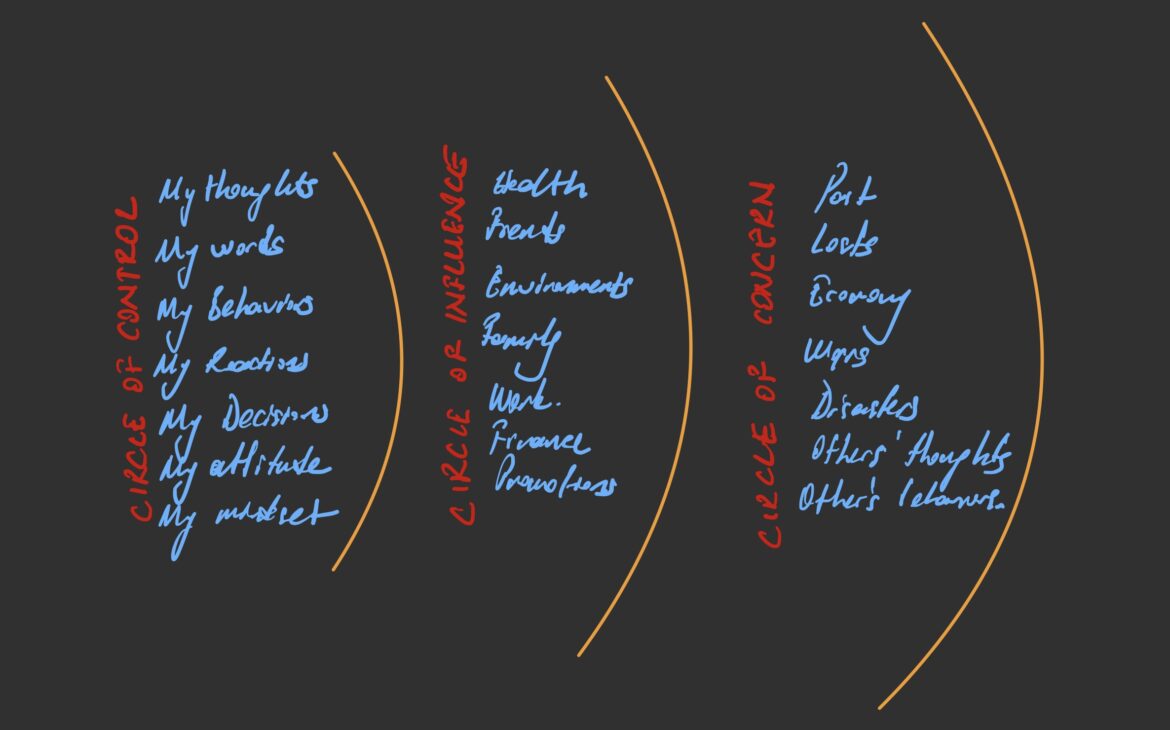 CIRCLE OF CONTROL
My thoughts
My words
My Behaviors
My Reactions
My Decisions
My attitude
My mindset
CIRCLE OF INFLUENCE
Health
Friends
Environments
Family
Work.
Finance
Promotions
CIRCLE OF CONCERN
Past
Losts
Economy
Wars
Disasters
Others' thoughts
Other's behaviors.